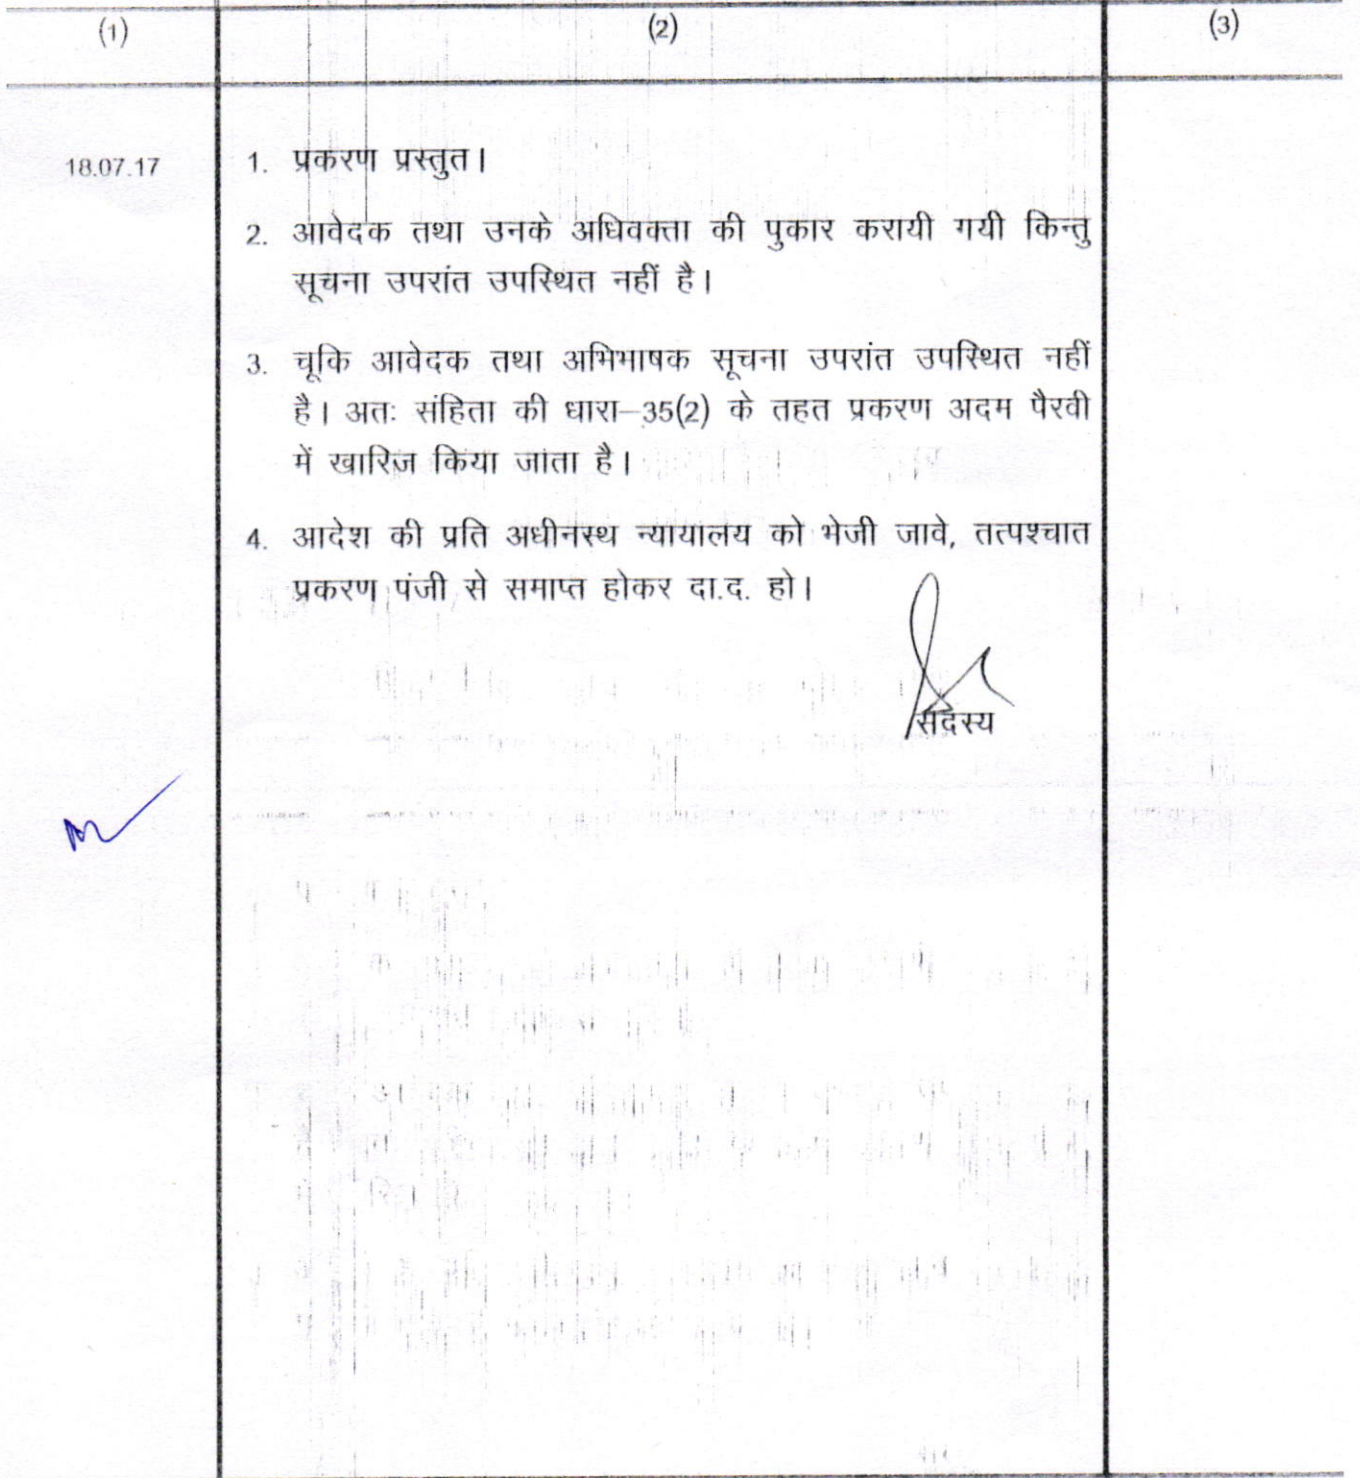 (1) (2) (3)
18.07.17 1. प्रकरण प्रस्तुत।
2. आवेदक तथा उनके अधिवक्ता की पुकार करायी गयी किन्तु
सूचना उपरांत उपस्थित नहीं है।
3. चूकि आवेदक तथा अभिभाषक सूचना उपरांत उपस्थित नहीं
है। अतः संहिता की धारा–35(2) के तहत प्रकरण अदम पैरवी
में खारिज़ किया जाता है।
4. आदेश की प्रति अधीनस्थ न्यायालय को भेजी जावे, तत्पश्चात
प्रकरण पंजी से समाप्त होकर दा.द. हो।
सदस्य